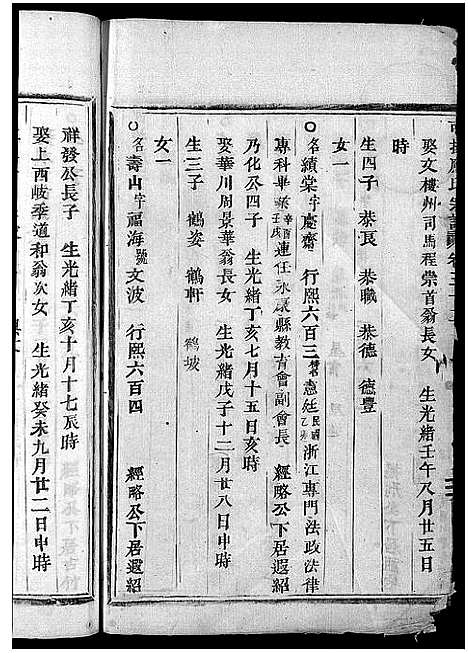 娶文樓州司馬程崇首翁長女　生光緒壬午八月廿五日
時
生四子　恭良　恭職　恭德　德豐
女一
○名績棠字慶齋　行熙六百三　號憲廷　民國乙卯浙江專門法政法律
專科畢業　辛酉連任永康縣教育會副會長　經略公下居遐紹
乃化公四子　生光緒丁亥七月十五日亥時
娶華川周景華翁長女　生光緒戊子十二月廿八日申時
生三子　鶴姿　鶴軒　鶴坡
女一
○名壽山字福海號文波　行熙六百四　經略公下居遐紹
祥發公長子　生光緒丁亥十月十七辰時
娶上西岐季道和翁次女　生光緒癸未九月廿二日申時